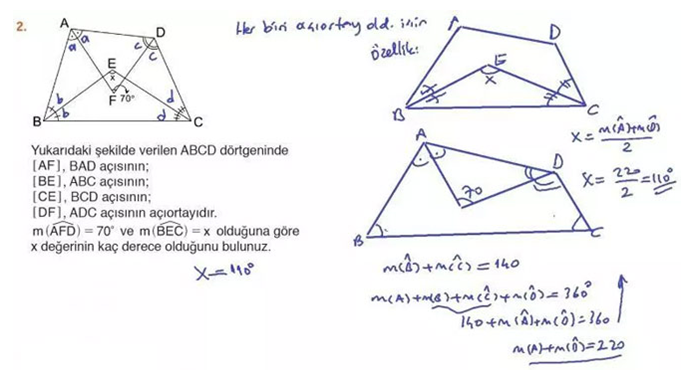 2.
A
D
a a
c
c
E
x
F 70°
b
b
d
d
B
C
Yukarıdaki şekilde verilen ABCD dörtgeninde
[AF], BAD açısının;
[BE], ABC açısının;
[CE], BCD açısının;
[DF], ADC açısının açıortayıdır.
m(AFD) = 70° ve m(BEC) = x olduğuna göre
x değerinin kaç derece olduğunu bulunuz.
x = 110°
Her biri açıortay old. için
özellik:
A
D
E
x
B
C
x = m(Â)+m(D̂)/2
x = 220/2 = 110°
A
D
70
B
C
m(B̂)+m(Ĉ) = 140
m(A)+m(B)+m(Ĉ)+m(D̂) = 360°
140+m(Â)+m(D̂) = 360
m(A)+m(D̂) = 220